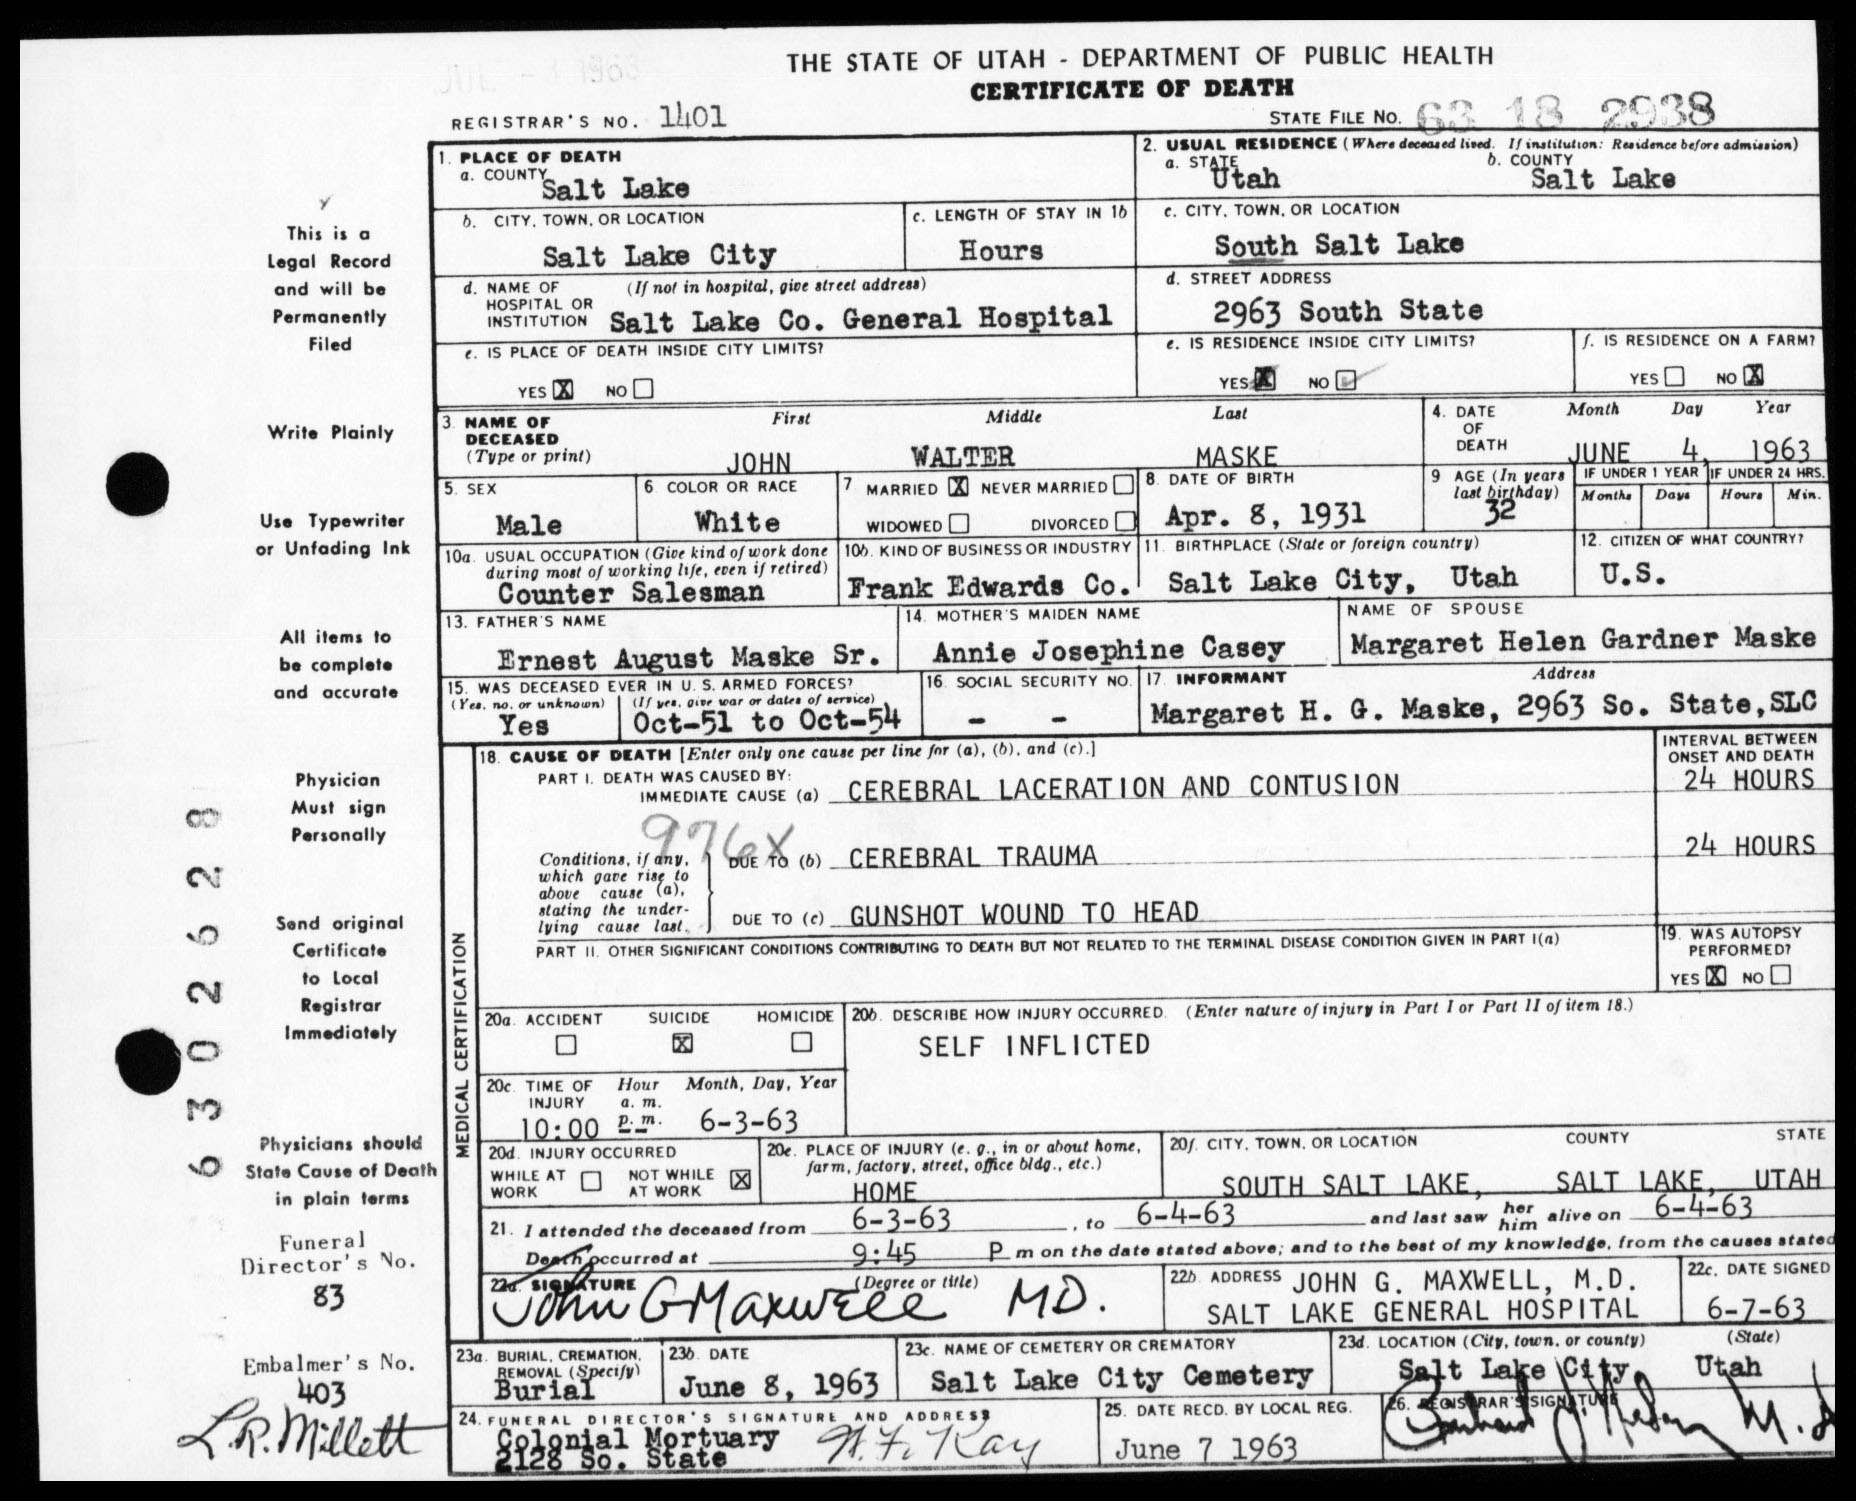 JUL - 3 1963
THE STATE OF UTAH - DEPARTMENT OF PUBLIC HEALTH
CERTIFICATE OF DEATH
REGISTRAR'S NO. 1401
STATE FILE NO. 63 18 2938
This is a
Legal Record
and will be
Permanently
Filed
Write Plainly
Use Typewriter
or Unfading Ink
All items to
be complete
and accurate
Physician
Must sign
Personally
Send original
Certificate
to Local
Registrar
Immediately
Physicians should
State Cause of Death
in plain terms
Funeral
Director's No.
83
Embalmer's No.
403
L.R. Millett
63026628
1. PLACE OF DEATH
a. COUNTY
Salt Lake
2. USUAL RESIDENCE (Where deceased lived. If institution: Residence before admission)
a. STATE b. COUNTY
Utah Salt Lake
b. CITY, TOWN, OR LOCATION
Salt Lake City
c. LENGTH OF STAY IN 1b
Hours
c. CITY, TOWN, OR LOCATION
South Salt Lake
d. NAME OF (If not in hospital, give street address)
HOSPITAL OR
INSTITUTION Salt Lake Co. General Hospital
d. STREET ADDRESS
2963 South State
e. IS PLACE OF DEATH INSIDE CITY LIMITS?
YES X NO
e. IS RESIDENCE INSIDE CITY LIMITS?
YES X NO ✓
f. IS RESIDENCE ON A FARM?
YES NO X
3. NAME OF
DECEASED
(Type or print)
First Middle Last
JOHN WALTER MASKE
4. DATE
OF
DEATH
Month Day Year
JUNE 4, 1963
5. SEX
Male
6. COLOR OR RACE
White
7 MARRIED X NEVER MARRIED
WIDOWED DIVORCED
8. DATE OF BIRTH
Apr. 8, 1931
9 AGE (In years
last birthday)
32
IF UNDER 1 YEAR
Months Days
IF UNDER 24 HRS.
Hours Min.
10a. USUAL OCCUPATION (Give kind of work done
during most of working life, even if retired)
Counter Salesman
10b. KIND OF BUSINESS OR INDUSTRY
Frank Edwards Co.
11. BIRTHPLACE (State or foreign country)
Salt Lake City, Utah
12. CITIZEN OF WHAT COUNTRY?
U.S.
13. FATHER'S NAME
Ernest August Maske Sr.
14. MOTHER'S MAIDEN NAME
Annie Josephine Casey
NAME OF SPOUSE
Margaret Helen Gardner Maske
15. WAS DECEASED EVER IN U. S. ARMED FORCES?
(Yes, no, or unknown) (If yes, give war or dates of service)
Yes Oct-51 to Oct-54
16. SOCIAL SECURITY NO.
- -
17. INFORMANT Address
Margaret H. G. Maske, 2963 So. State, SLC
MEDICAL CERTIFICATION
18. CAUSE OF DEATH [Enter only one cause per line for (a), (b), and (c).]
INTERVAL BETWEEN
ONSET AND DEATH
PART I. DEATH WAS CAUSED BY:
IMMEDIATE CAUSE (a) CEREBRAL LACERATION AND CONTUSION 24 HOURS
976X
Conditions, if any,
which gave rise to
above cause (a),
stating the under-
lying cause last.
DUE TO (b) CEREBRAL TRAUMA 24 HOURS
DUE TO (c) GUNSHOT WOUND TO HEAD
PART II. OTHER SIGNIFICANT CONDITIONS CONTRIBUTING TO DEATH BUT NOT RELATED TO THE TERMINAL DISEASE CONDITION GIVEN IN PART I(a)
19. WAS AUTOPSY
PERFORMED?
YES X NO
20a. ACCIDENT SUICIDE HOMICIDE
X
20b. DESCRIBE HOW INJURY OCCURRED. (Enter nature of injury in Part I or Part II of item 18.)
SELF INFLICTED
20c. TIME OF Hour Month, Day, Year
INJURY a. m.
10:00 p. m. 6-3-63
20d. INJURY OCCURRED
WHILE AT NOT WHILE X
WORK AT WORK
20e. PLACE OF INJURY (e. g., in or about home,
farm, factory, street, office bldg., etc.)
HOME
20f. CITY, TOWN, OR LOCATION COUNTY STATE
SOUTH SALT LAKE, SALT LAKE, UTAH
21. I attended the deceased from 6-3-63, to 6-4-63 and last saw her him alive on 6-4-63
Death occurred at 9:45 P m on the date stated above; and to the best of my knowledge, from the causes stated
22a. SIGNATURE (Degree or title)
John G Maxwell MD.
22b. ADDRESS JOHN G. MAXWELL, M.D.
SALT LAKE GENERAL HOSPITAL
22c. DATE SIGNED
6-7-63
23a. BURIAL, CREMATION,
REMOVAL (Specify)
Burial
23b. DATE
June 8, 1963
23c. NAME OF CEMETERY OR CREMATORY
Salt Lake City Cemetery
23d. LOCATION (City, town, or county) (State)
Salt Lake City Utah
24. FUNERAL DIRECTOR'S SIGNATURE AND ADDRESS
Colonial Mortuary
2128 So. State
25. DATE RECD. BY LOCAL REG.
June 7 1963
26. REGISTRAR'S SIGNATURE